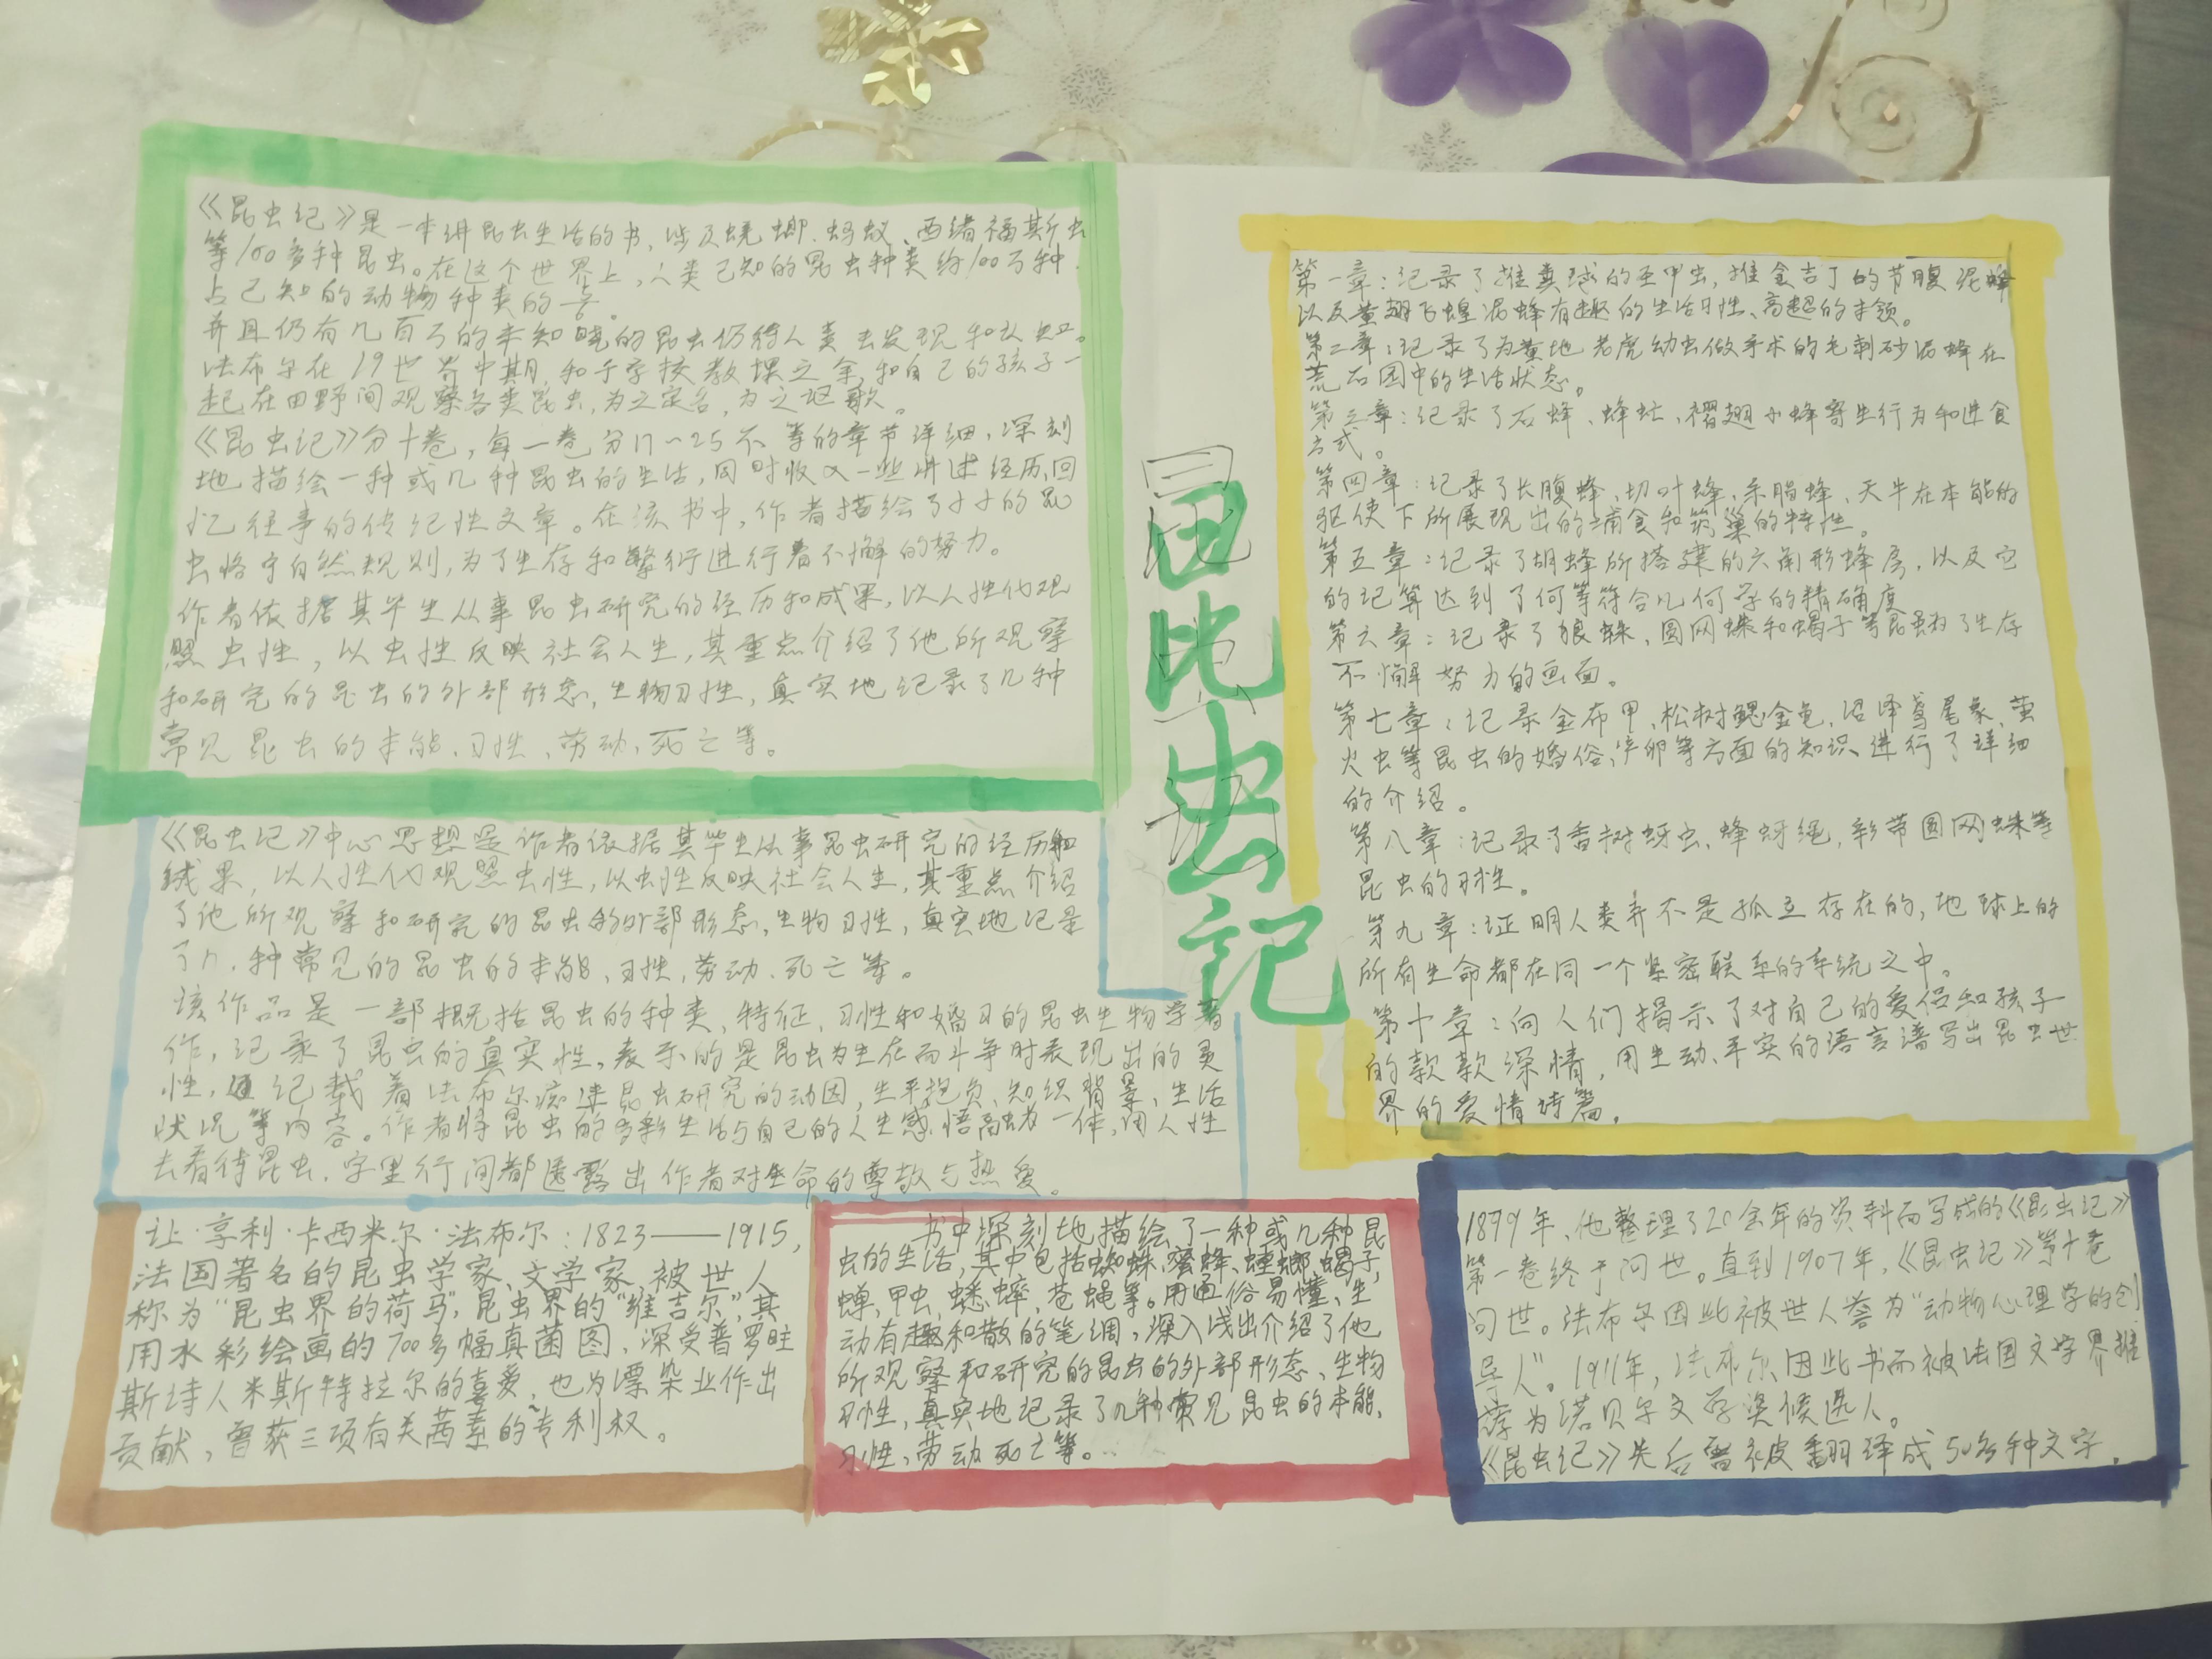 《昆虫记》是一本讲昆虫生活的书，涉及蜣螂、蚂蚁、西绪福斯虫
等100多种昆虫。在这个世界上，人类已知的昆虫种类约100万种，
占已知的动物种类的
并且仍有几百万的未知晓的昆虫仍待人类去发现和认知。
法布尔在19世界中期，和于学校教课之余，和自己的孩子一
起在田野间观察各类昆虫，为之定名，为之讴歌。
《昆虫记》分十卷，每一卷分17～25不等的章节详细，深刻
地描绘一种或几种昆虫的生活，同时收入一些讲述经历、回
忆往事的传纪性文章。在该书中，作者描绘了小小的昆
虫恪守自然规则，为了生存和繁衍进行着不懈的努力。
作者依据其毕生从事昆虫研究的经历和成果，以人性化观
照虫性，以虫性反映社会人生，其重点介绍了他所观察
和研究的昆虫的外部形态，生物习性，真实地记录了几种
常见昆虫的本能、习性、劳动、死亡等。
《昆虫记》中心思想是作者依据其毕生从事昆虫研究的经历和
成果，以人性化观照虫性，以虫性反映社会人生，其重点介绍
了他所观察和研究的昆虫的外部形态，生物习性，真实地记录
了几种常见的昆虫的本能、习性，劳动、死亡等。
该作品是一部概括昆虫的种类、特征、习性和婚习的昆虫生物学著
作，记录了昆虫的真实性，表示的是昆虫为生存而斗争时表现出的灵
性，记载着法布尔痴迷昆虫研究的动因，生平抱负、知识背景、生活
状况等内容。作者将昆虫的多彩生活与自己的人生感悟融为一体，用人性
去看待昆虫，字里行间都透露出作者对生命的尊敬与热爱。
让·亨利·卡西米尔·法布尔：1823——1915，
法国著名的昆虫学家、文学家，被世人
称为“昆虫界的荷马”，昆虫界的“维吉尔”，其
用水彩绘画的700多幅真菌图，深受普罗旺
斯诗人米斯特拉尔的喜爱，也为漂染业作出
贡献，曾获三项有关茜素的专利权。
书中深刻地描绘了一种或几种昆
虫的生活，其中包括蜘蛛、蜜蜂、螳螂、蝎子，
蝉、甲虫、蟋蟀、苍蝇等。用通俗易懂、生
动有趣和散的笔调，深入浅出介绍了他
所观察和研究的昆虫的外部形态、生物
习性，真实地记录了几种常见昆虫的本能，
习性、劳动死亡等。
昆虫记
第一章：记录了推粪球的圣甲虫，推金吉丁的节腹泥蜂
以及黄翅飞蝗泥蜂有趣的生活习性、高超的本领。
第二章：记录了为黄地老虎幼虫做手术的毛刺砂泥蜂在
荒石园中的生活状态。
第三章：记录了石蜂、蜂虻、褶翅小蜂寄生行为和进食
方式。
第四章：记录了长腹蜂、切叶蜂、采脂蜂、天牛在本能的
驱使下所展现出的捕食和筑巢的特性。
第五章：记录了胡蜂所搭建的六角形蜂房，以及它
的记算达到了何等符合几何学的精确度
第六章：记录了狼蛛，圆网蛛和蝎子等昆虫为了生存
不懈努力的画面。
第七章：记录金布甲、松树鳃金龟、沼泽鸢尾象、萤
火虫等昆虫的婚俗、产卵等方面的知识、进行了详细
的介绍。
第八章：记录了香树蚜虫、蜂蚜绳，彩带圆网蛛等
昆虫的习性。
第九章：证明人类并不是孤立存在的，地球上的
所有生命都在同一个紧密联系的系统之中。
第十章：向人们揭示了对自己的爱侣和孩子
的款款深情，用生动、平实的语言谱写出昆虫世
界的爱情诗篇。
1879年，他整理了20余年的资料而写成的《昆虫记》
第一卷终于问世。直到1907年，《昆虫记》第十卷
问世。法布尔因此被世人誉为“动物心理学的创
导人”。1911年，法布尔因此书而被法国文学界推
荐为诺贝尔文学奖候选人。
《昆虫记》先后曾被翻译成50多种文字。